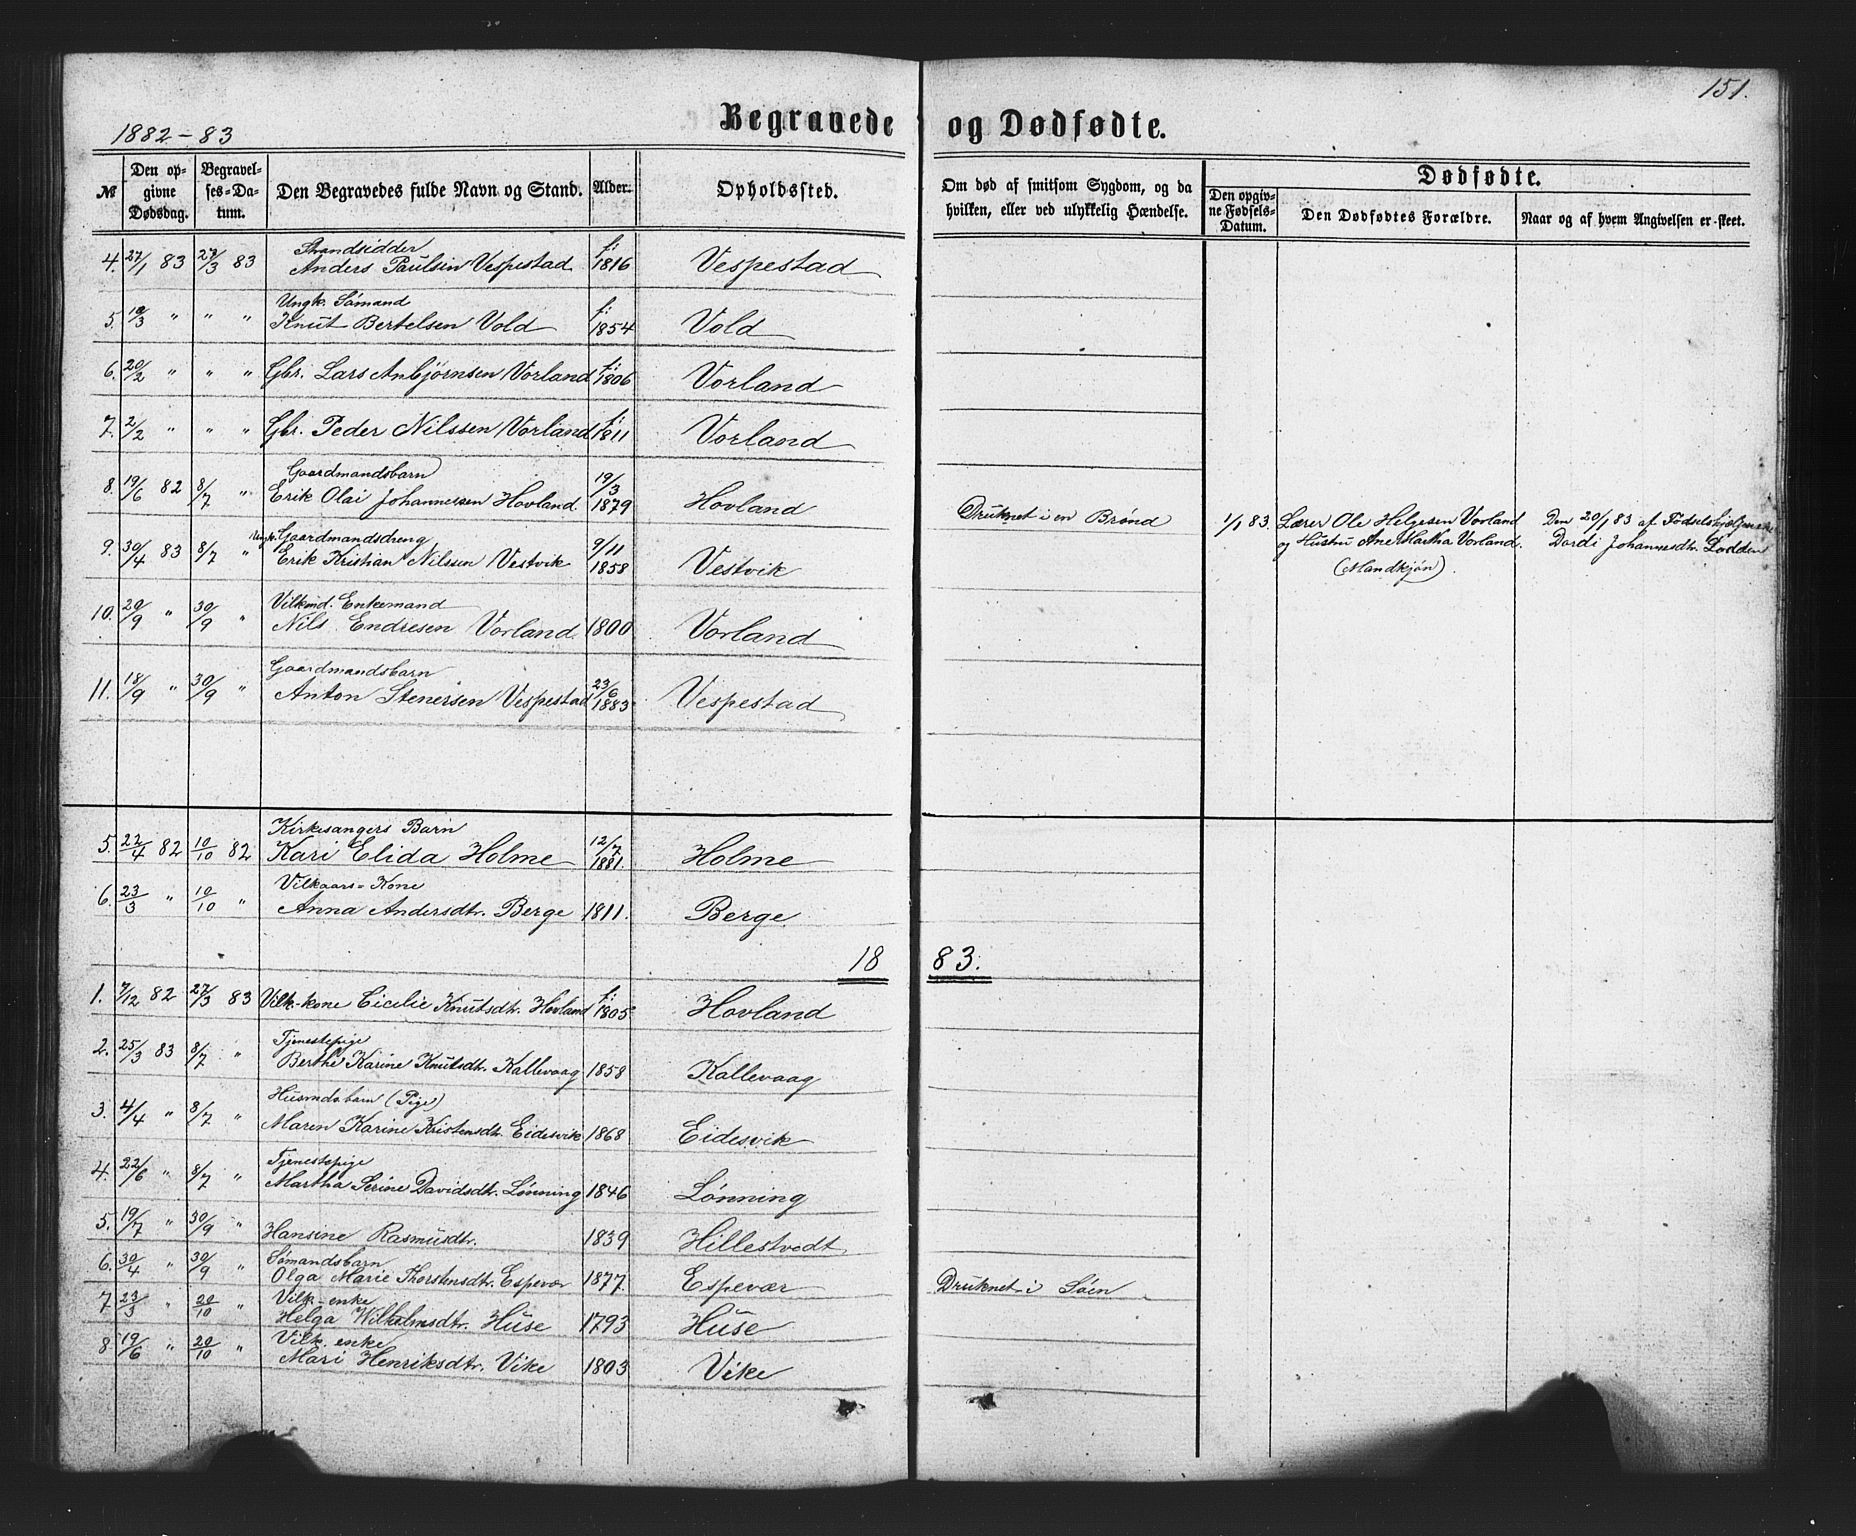 151.
1882-83
Begravede og Dødfødte.
№
Den opgivne Dødsdag.
Begravelses-Datum.
Den Begravedes fulde Navn og Stand.
Alder.
Opholdssted.
Om død af smitsom Sygdom, og da hvilken, eller ved ulykkelig Hændelse.
Dødfødte.
Den opgivne Fødsels-Datum.
Den Dødfødtes Forældre.
Naar og af hvem Angivelsen er skeet.
Strandsidder
4. 27/1 83 27/3 83 Anders Paulsen Vespestad f: 1816 Vespestad
Ungk. Sømand
5. 19/3 " " " Knut Bertelsen Vold f: 1854 Vold
6. 20/2 " " " Gbr. Lars Anbjørnsen Vorland f: 1806 Vorland
7. 2/2 " " " Gbr. Peder Nilssen Vorland f: 1811 Vorland
Gaardmandsbarn
8. 19/6 82 8/7 " Erik Olai Johannessen Hovland 19/3 1879 Hovland Druknet i en Brønd
1/1 83. Lærer Ole Helgesen Vorland Den 20/1 83 af
og Hustru Ane Martha Vorland. Dordi Johannesdtr. Lodden
(Mandkjøn)
Ungk. Gaardmandsdreng
9. 30/4 83 8/7 " Erik Kristian Nilssen Vestvik 9/11 1858 Vestvik
Vilkmd. Enkemand
10. 20/9 " 30/9 " Nils Endresen Vorland 1800 Vorland
Gaardmandsbarn
11. 18/9 " 30/9 " Anton Stenersen Vespestad 23/6 1883 Vespestad
Kirkesangers Barn
5. 22/4 82 10/10 82 Kari Elida Holme 12/7 1881. Holme
Vilkaars-Kone
6. 23/3 " 10/10 " Anna Andersdtr. Berge 1811. Berge
1883.
1. 7/12 82 27/3 83 Vilk-kone Cicilie Knutsdtr. Hovland f: 1805 Hovland
Tjenestepige
2. 25/3 83 8/7 " Berthe Karine Knutsdtr. Kallevaag 1858 Kallevaag
Husmdsbarn (Pige)
3. 4/4 " 8/7 " Maren Karine Kristensdtr. Eidesvik 1868 Eidesvik
Tjenestepige
4. 22/6 " 8/7 " Martha Serine Davidsdtr. Lønning 1846 Lønning
5. 19/7 " 30/9 " Hansine Rasmusdtr. 1839 Hillestvedt
Sømandsbarn
6. 30/4 " 30/9 " Olga Marie Thorstensdtr. Espevær 1877. Espevær Druknet i Søen
Vilk-enke
7. 23/3 " 20/10 " Helga Wilhelmsdtr. Huse 1793 Huse
Vilk. enke
8 19/6 " 20/10 " Mari Henriksdtr. Vike 1803 Vike